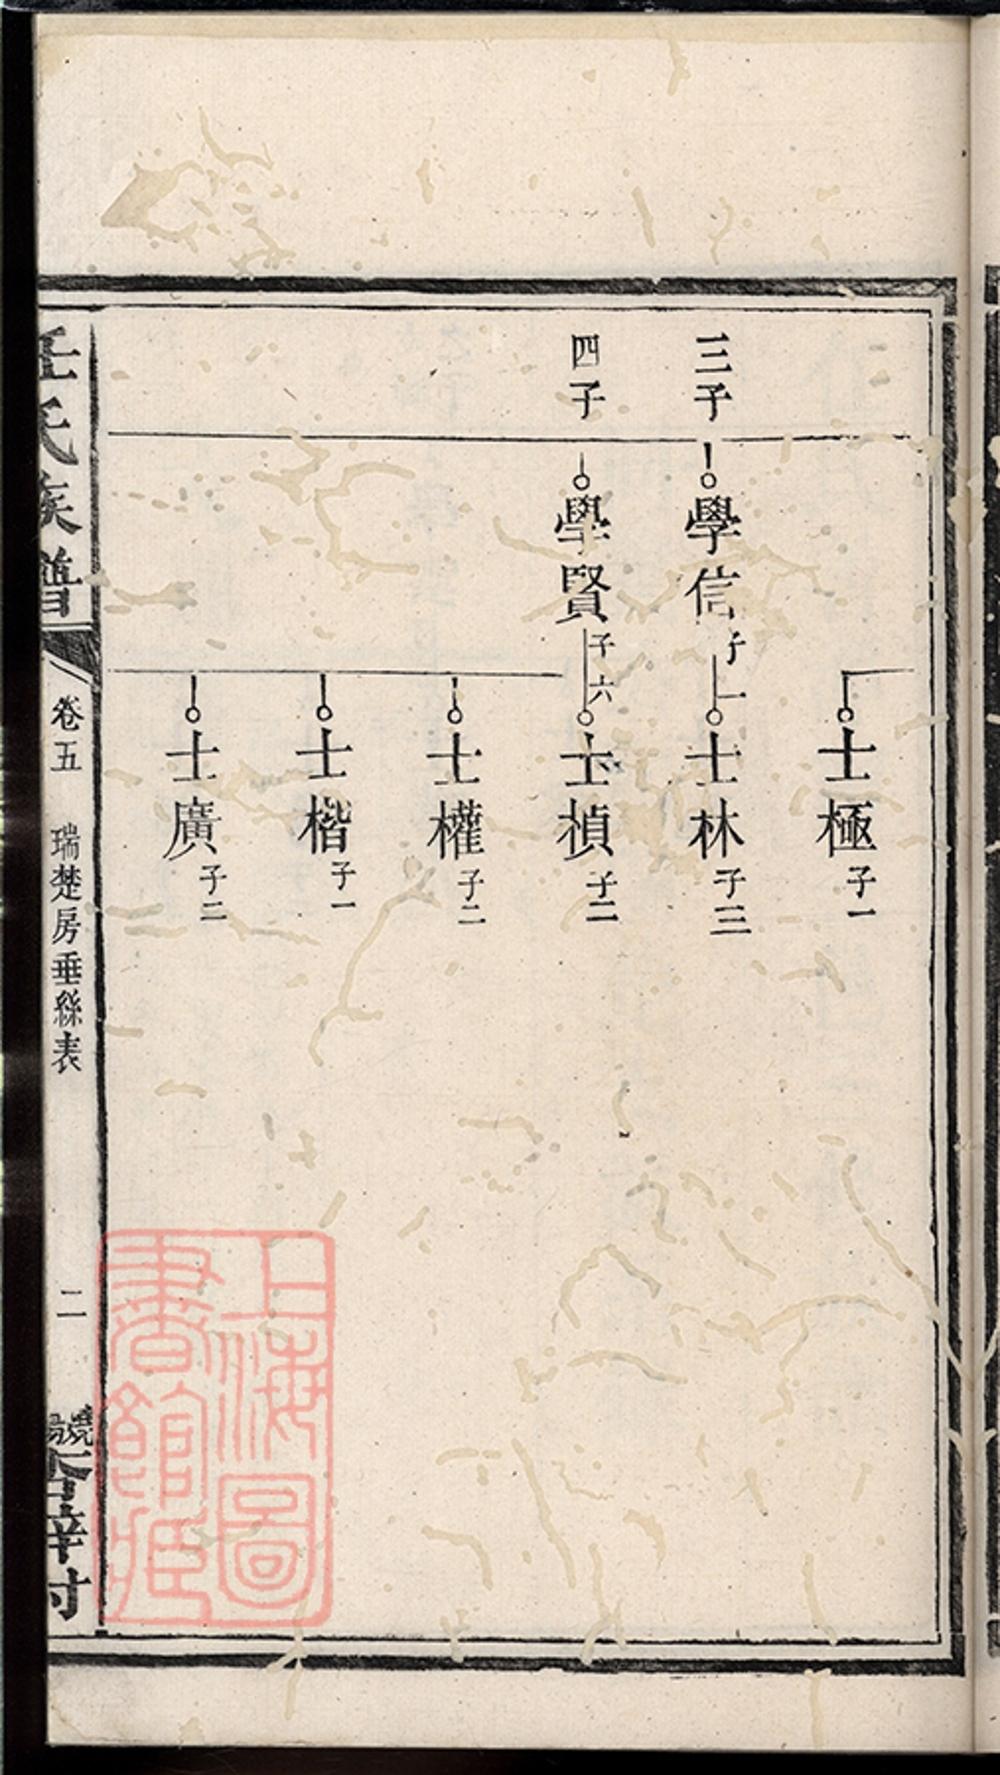 三子
學信 子一
四子
學賢 子六
士極 子一
士林 子三
士楨 子二
士權 子二
士楷 子一
士廣 子二
氏族譜
卷五 瑞楚房垂絲表
二
上海圖
書館藏